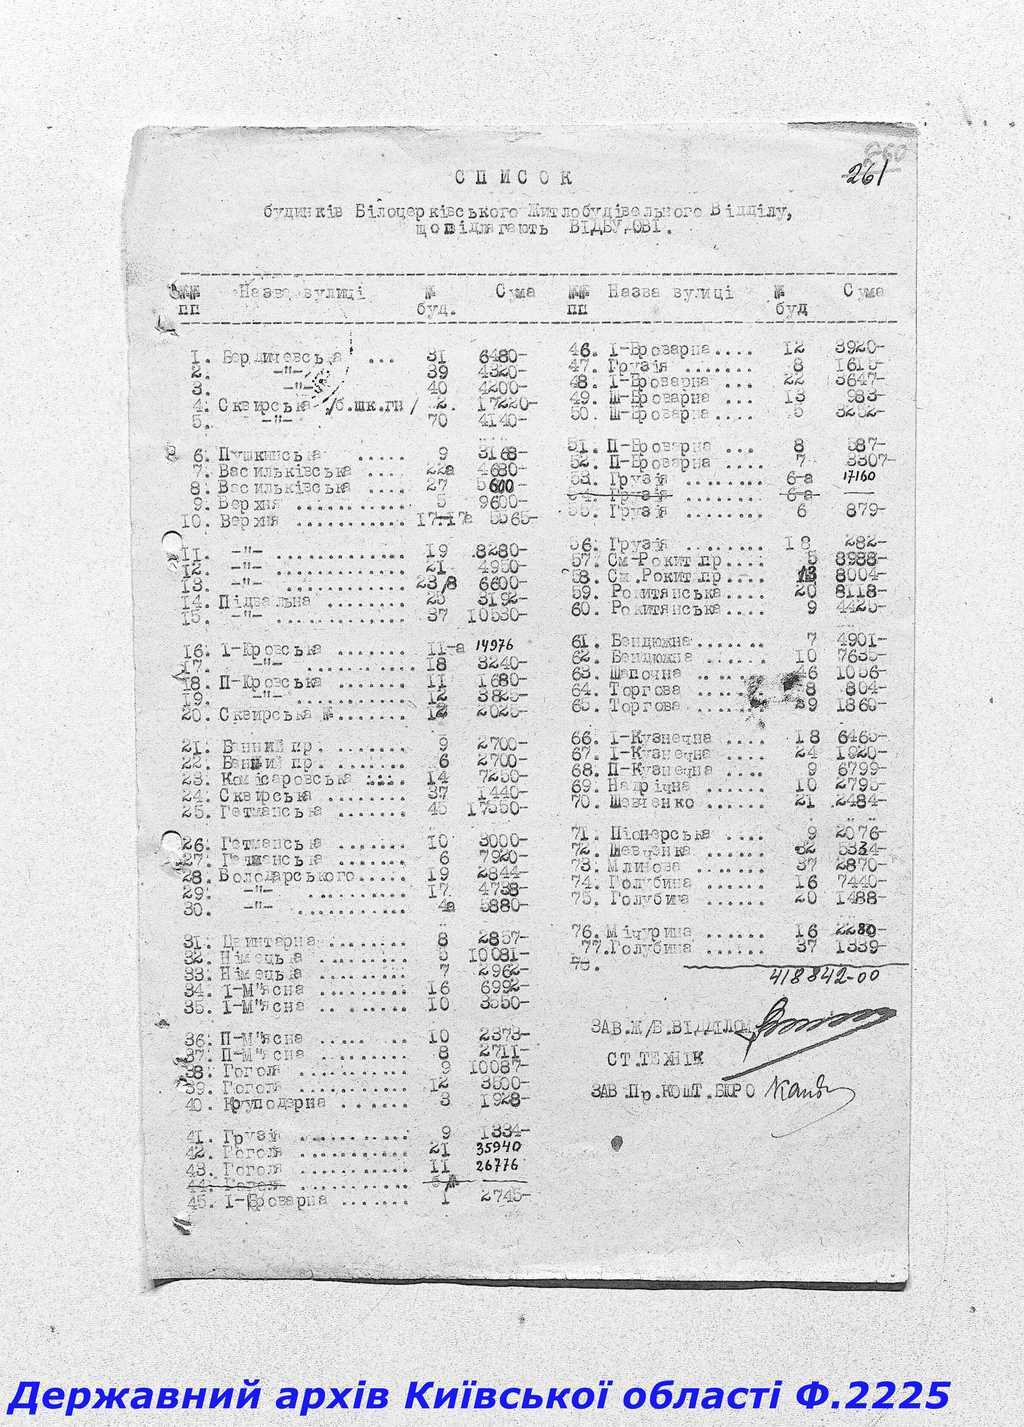 261
СПИСОК
будинків Білоцерківського Житлобудівельного Відділу,
що підлягають ВІДБУДОВІ.
№№ Назва вулиці № Сума
пп буд.
1. Бердичевська ... 31 6480-
2. -"- 39 4320-
3. -"- 40 4200-
4. Сквирська /б.шк.ги/ 2. 17220-
5. -"- 70 4140-
6. Пушкинська ..... 9 3168-
7. Васильківська .... 22а 4680-
8. Васильківська .... 27 5600-
9. Верхня ............ 5 9600-
10. Верхня ............ 17-17а 5565-
11. -"- .............. 19 8280-
12. -"- .............. 21 4950-
13. -"- .............. 23/8 6600-
14. Підвальна ........ 25 3192-
15. -"- ............. 37 10530-
16. І-Кровська ....... 11-а 14976
17. -"- ............ 18 3240-
18. П-Кровська ....... 11 1680-
19. -"- ............ 12 3825-
20. Сквирська №....... 12 2025-
21. Банний пр. ........ 9 2700-
22. Банний пр. ........ 6 2700-
23. Комісаровська .... 14 7250-
24. Сквирська ........ 37 1440-
25. Гетманська ....... 45 17550-
26. Гетманська ....... 10 3000-
27. Гетманська ....... 6 7920-
28. Володарського..... 19 2844-
29. -"- .......... 17 4738-
30. -"- ........... 4а 5880-
31. Цвинтарна ........ 8 2857-
32. Німецька ......... 5 10081-
33. Німецька ......... 7 2962-
34. І-М"ясна ......... 16 6992-
35. І-М"ясна .. ...... 10 3550-
36. П-М"ясна ..... .. 10 2373-
37. П-М"ясна ........ 8 2711-
38. Гоголя ........... 9 10087-
39. Гоголя ........... 12 3500-
40. Круподерна ....... 3 1928-
41. Грузія ........... 9 1334-
42. Гоголя ........... 21 35940
43. Гоголя ........... 11 26776
44. Гоголя ...........
45. І-Броварна ....... 1 2745-
№№ Назва вулиці № Сума
пп буд
46. І-Броварна.... 12 3920-
47. Грузія ....... 8 1615-
48. І-Броварна ... 22 3647-
49. Ш-Броварна ... 13 983-
50. Ш-Броварна.... 5 3252-
51. П-Броварна ... 8 587-
52. П-Броварна .... 7 3307-
53. Грузія ........ 6-а 17160
54. Грузія ........ 6-а —
55. Грузія ........ 6 879-
56. Грузія ........ 18 282-
57. См-Рокит.пр.... 5 8988-
58. См.Рокит.пр ... 13 8004-
59. Рокитянська.... 20 8118-
60. Рокитянська.... 9 4425-
61. Бендюжна....... 7 4901-
62. Бендюжна ...... 10 7635-
63. Шапочна ...... 46 1056-
64. Торгова 8 804-
65. Торгова....... 39 1860-
66. І-Кузнечна .... 18 6465-
67. І-Кузнечна .... 24 1920-
68. П-Кузнечна .... 9 6799-
69. Напрічна ...... 10 2795-
70. Шевченко ...... 21 2484-
71. Піонерська .... 9 2076-
72. Шевченка ...... 32 5334-
73. Млинова ....... 37 2870-
74. Голубина ...... 16 7440-
75. Голубина ...... 20 1488-
76. Мічурина ...... 16 2280-
77. Голубина ...... 37 1339-
78.
418842-00
ЗАВ.Ж/Б.ВІДДІЛОМ
СТ.ТЕХНІК
ЗАВ.Пр.КОШТ.БЮРО
Державний архів Київської області Ф.2225